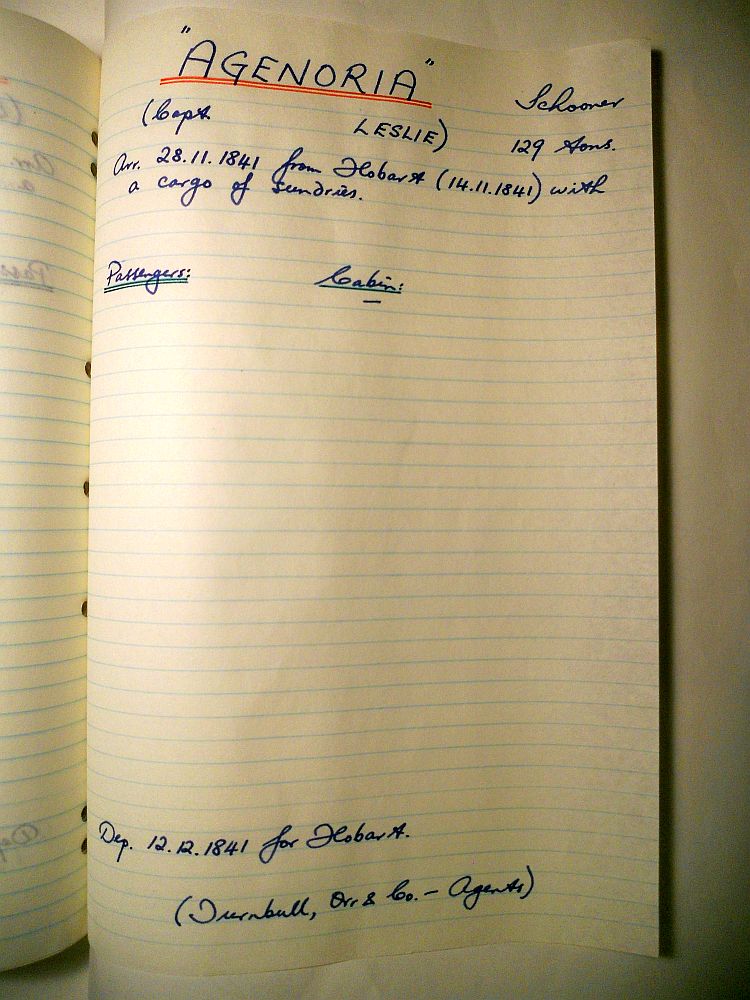 "AGENORIA"
Schooner
(Capt LESLIE)
129 tons.
Arr. 28.11.1841 from Hobart (14.11.1841) with
a cargo of sundries.
Passengers: Cabin:
—
Dep. 12.12.1841 for Hobart.
(Turnbull, Orr & Co. – Agents)